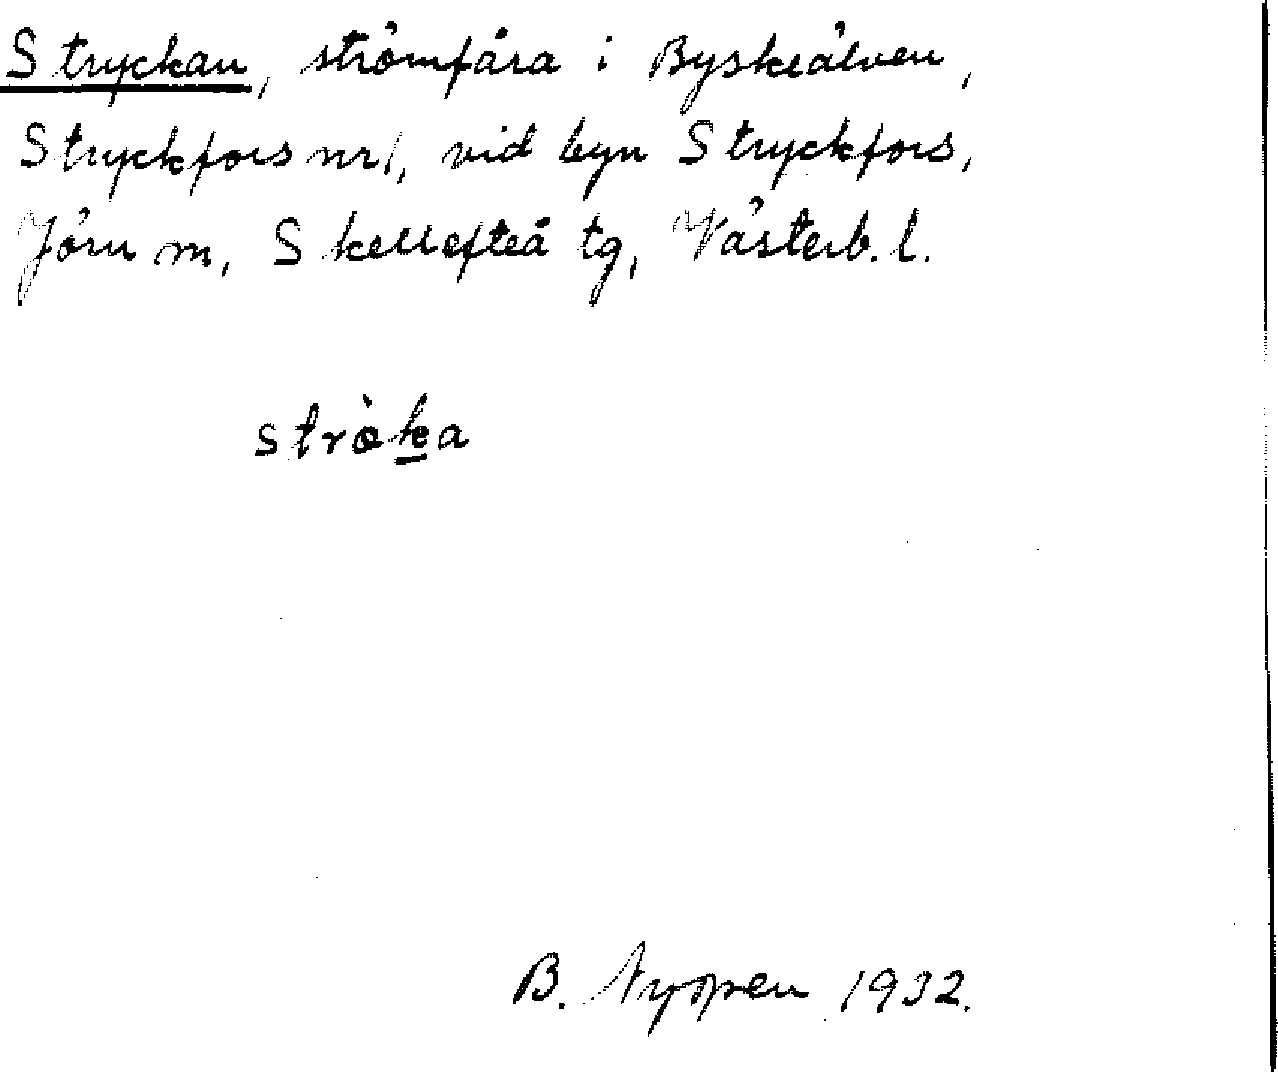 Stryckan, strömfåra i Byskeälven,
Stryckfors nr 1, vid byn Stryckfors,
Jörn sn, Skellefteå tg, Västerb. l.
stròk̲a
B. Nyman 1932.